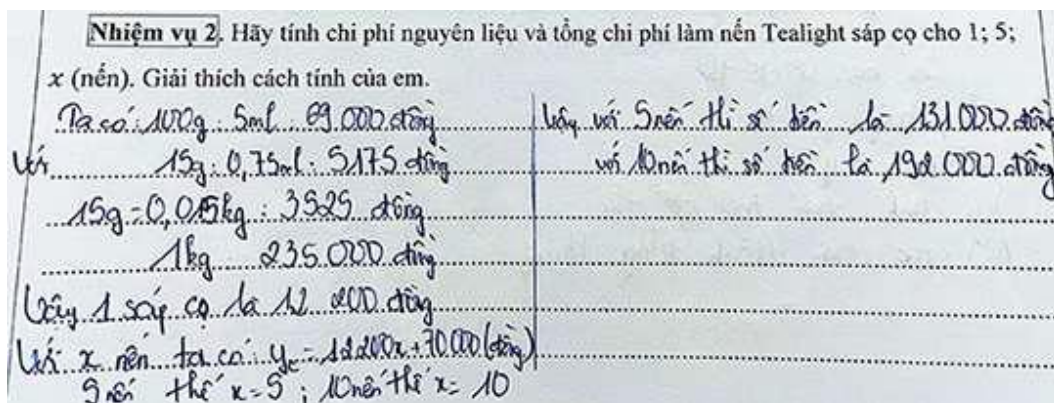 Nhiệm vụ 2. Hãy tính chi phí nguyên liệu và tổng chi phí làm nến Tealight sáp cọ cho 1; 5;
x (nến). Giải thích cách tính của em.
Ta có: 100g : 5ml : 69.000 đồng
Với 15g : 0,75ml : 5175 đồng
15g = 0,015kg : 3525 đồng
1kg 235.000 đồng
Vậy 1 sáp cọ là 12 200 đồng
Với x nến ta có: y = 12200x + 70.000 (đồng)
5 nến thế x = 5 ; 10 nến thế x = 10
Vậy với 5 nến thì số tiền là 131.000 đồng
với 10 nến thì số tiền là 192.000 đồng